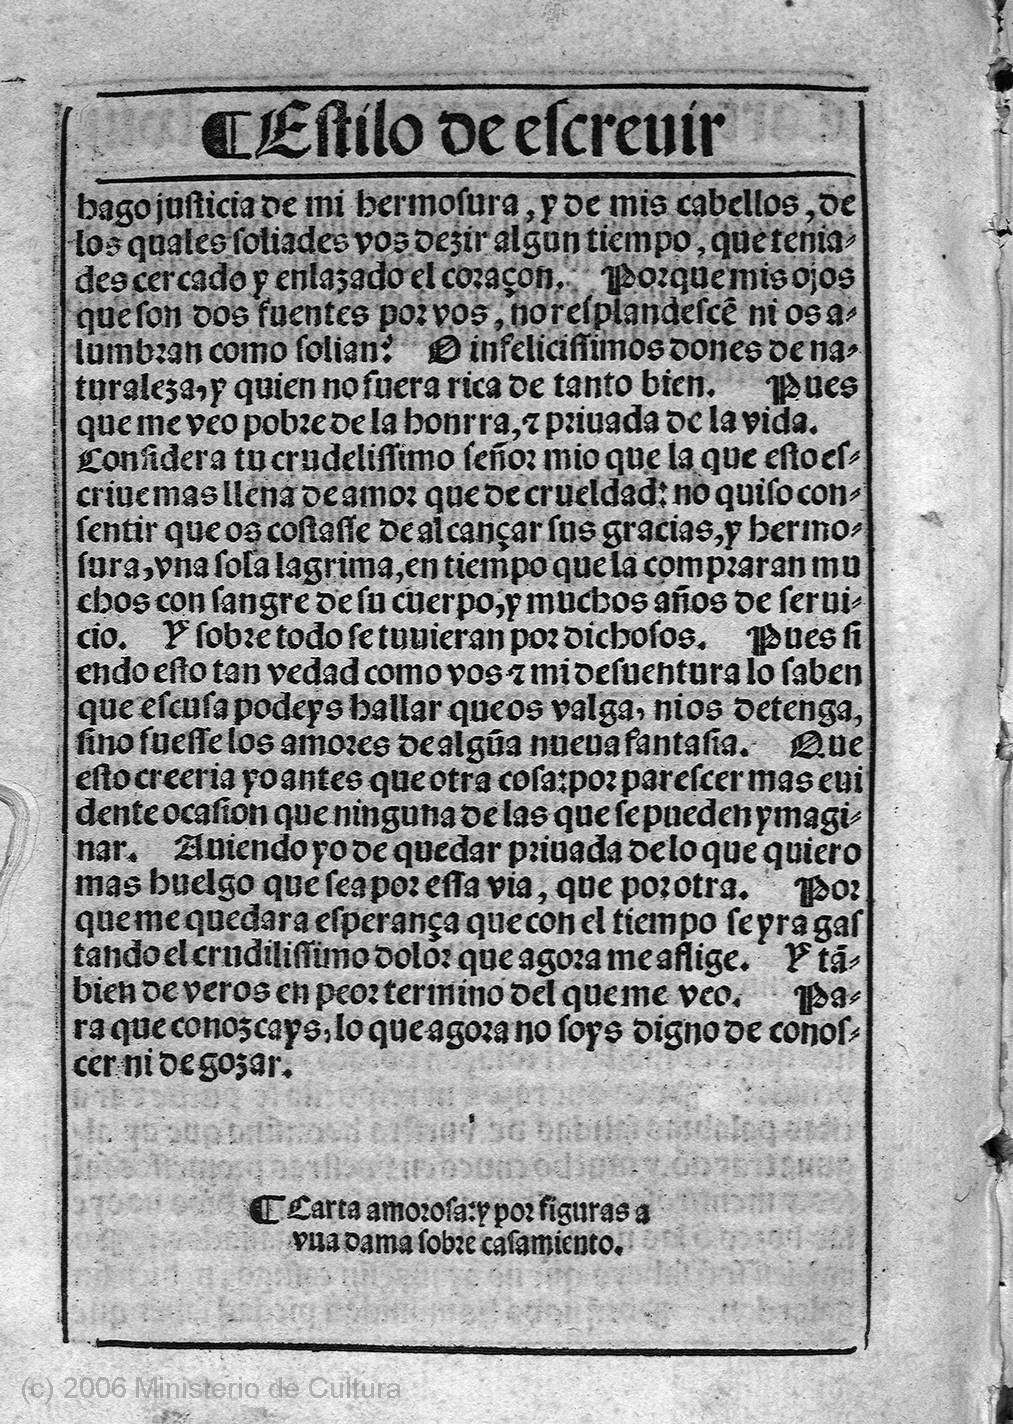 ¶Estilo de escreuir
hago justicia de mi hermosura, y de mis cabellos, de
los quales soliades vos dezir algun tiempo, que tenia-
des cercado y enlazado el coraçon. Porque mis ojos
que son dos fuentes por vos, no resplandescẽ ni os a-
lumbran como solian? O infelicissimos dones de na-
turaleza, y quien no fuera rica de tanto bien. Pues
que me veo pobre de la honrra, ⁊ priuada de la vida.
Considera tu crudelissimo señor mio que la que esto es-
criue mas llena de amor que de crueldad: no quiso con-
sentir que os costasse de alcançar sus gracias, y hermo-
sura, vna sola lagrima, en tiempo que la compraran mu
chos con sangre de su cuerpo, y muchos años de serui-
cio. Y sobre todo se tuuieran por dichosos. Pues si
endo esto tan vedad como vos ⁊ mi desuentura lo saben
que escusa podeys hallar que os valga, ni os detenga,
sino fuesse los amores de algũa nueua fantasia. Que
esto creeria yo antes que otra cosa: por parescer mas eui
dente ocasion que ninguna de las que se pueden ymagi-
nar. Auiendo yo de quedar priuada de lo que quiero
mas huelgo que sea por essa via, que por otra. Por
que me quedara esperança que con el tiempo se yra gas
tando el crudilissimo dolor que agora me aflige. Y tã-
bien de veros en peor termino del que me veo. Pa-
ra que conozcays, lo que agora no soys digno de conos-
cer ni de gozar.
¶ Carta amorosa: y por figuras a
vna dama sobre casamiento.
(c) 2006 Ministerio de Cultura